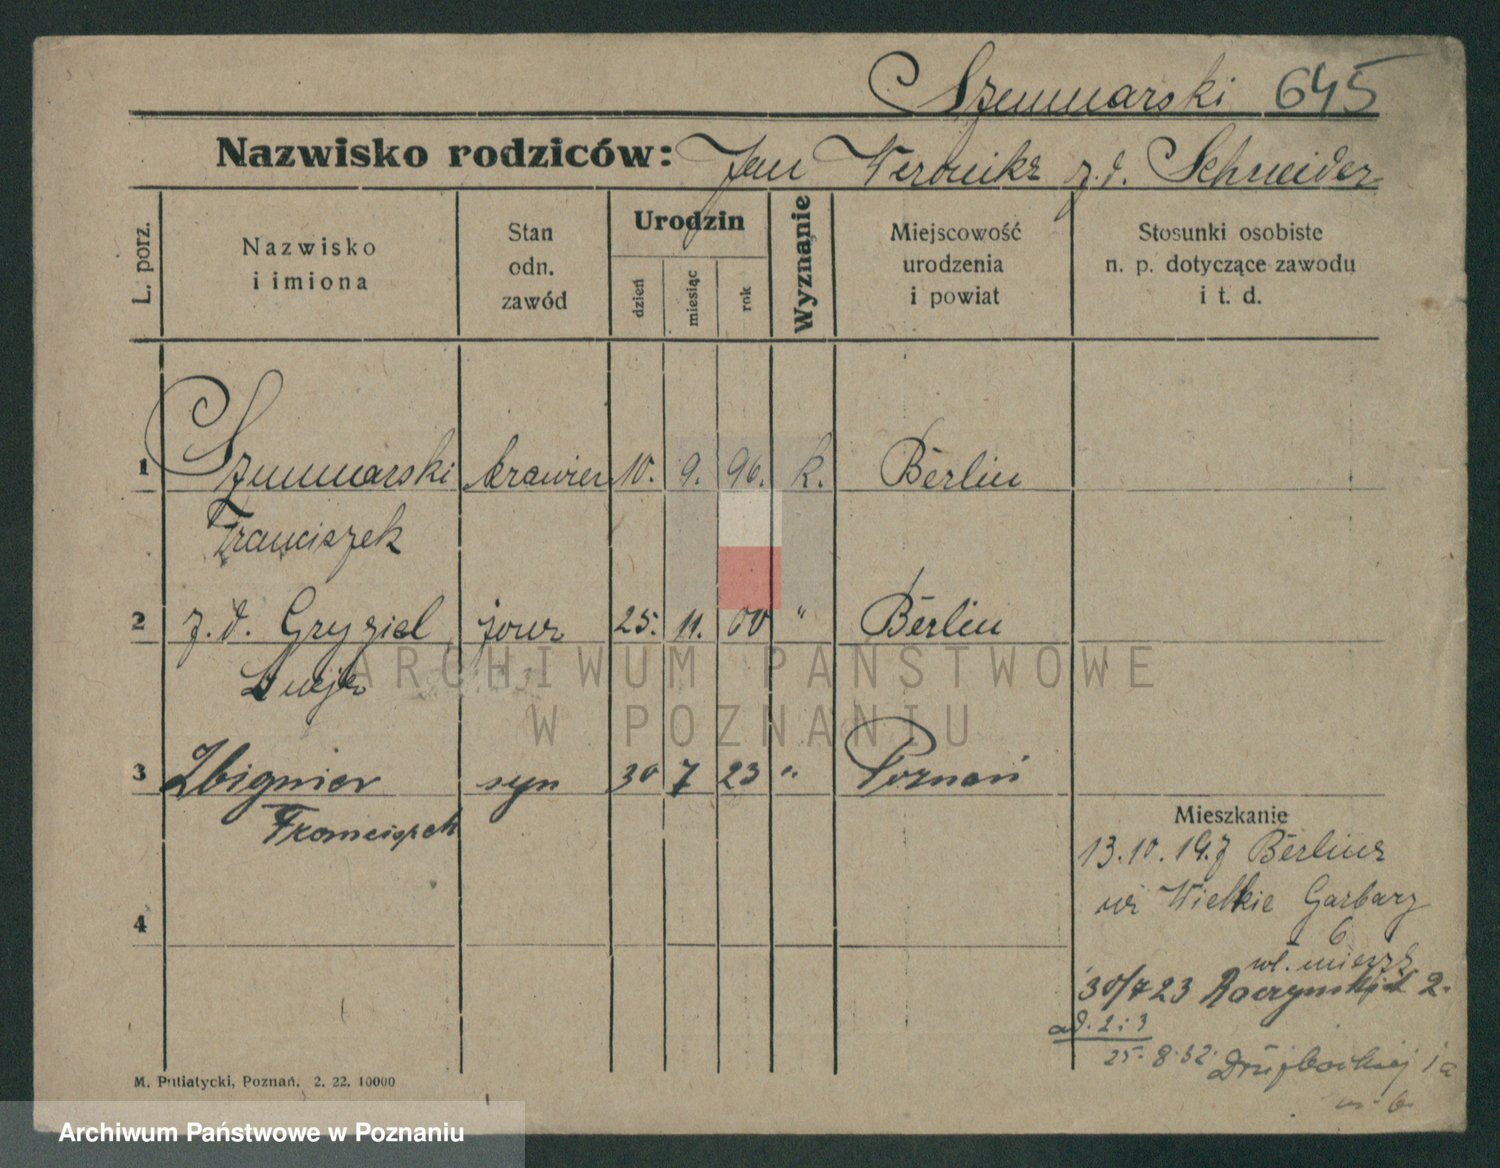 Szummarski 645
Nazwisko rodziców: Jan Weronika z.d. Schneider
L. porz.
Nazwisko
i imiona
Stan
odn.
zawód
Urodzin
dzień
miesiąc
rok
Wyznanie
Miejscowość
urodzenia
i powiat
Stosunki osobiste
n. p. dotyczące zawodu
i t. d.
1 Szummarski krawiec 10. 9. 96. k. Berlin
Franciszek
2 z. d. Gryziel żona 25. 11. 00 " Berlin
Łucja
3 Zbigniew syn 30 7 23 " Poznań
Franciszek
4
Mieszkanie
13.10.19. z Berlina
Wielkie Garbary
6
wł. miesz
30/7 23 Raczyńskich 2.
ad. 2 i 3
25. 8. 32.
M. Putiatycki, Poznań. 2. 22. 10000
ARCHIWUM PAŃSTWOWE
W POZNANIU
Archiwum Państwowe w Poznaniu